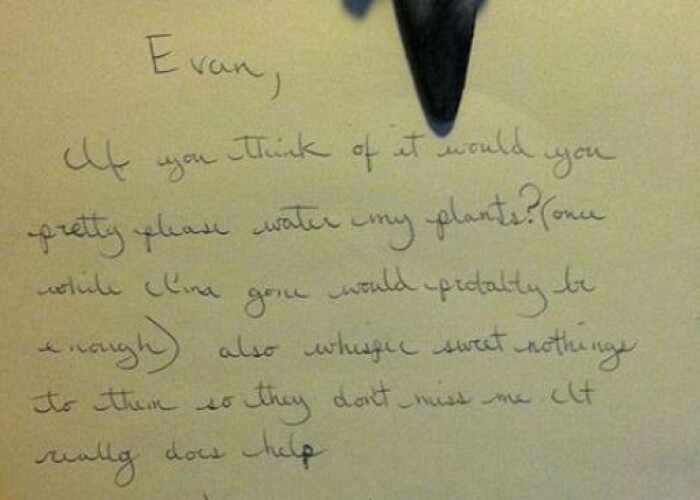 Evan,
If you think of it would you
pretty please water my plants? (once
while I'm gone would probably be
enough) also whisper sweet nothings
to them so they don't miss me It
really does help